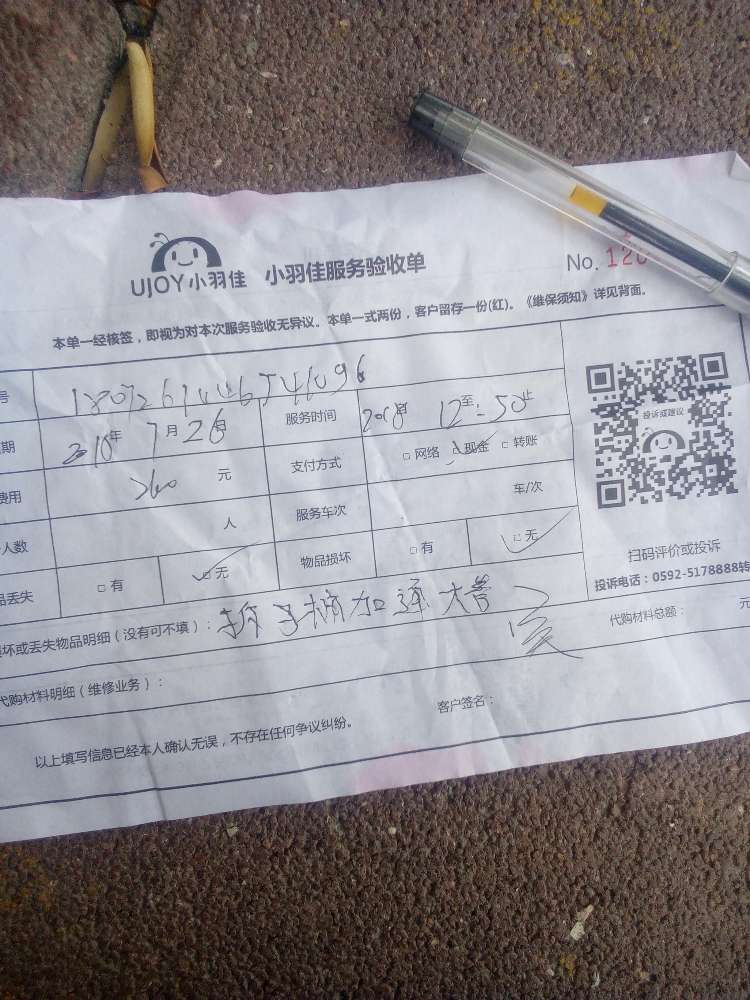 UJOY小羽佳 小羽佳服务验收单 No. 120
本单一经核签，即视为对本次服务验收无异议。本单一式两份，客户留存一份(红)。《维保须知》详见背面。
号
期 2018年 7月 26日 服务时间 2018时 12至:50止
费用 260 元 支付方式 □ 网络 □ 现金 □ 转账
人数 人 服务车次 车/次
品丢失 □ 有 □ 无 物品损坏 □ 有 □ 无
投诉或建议
扫码评价或投诉
投诉电话：0592-5178888转
坏或丢失物品明细（没有可不填）： 加通大管
代购材料明细（维修业务）： 代购材料总额： 元
以上填写信息已经本人确认无误，不存在任何争议纠纷。 客户签名：